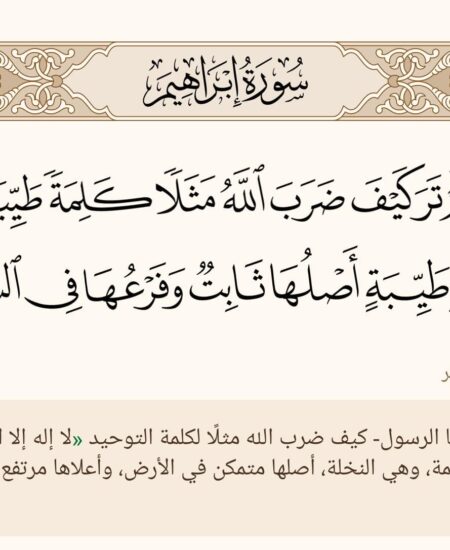 سُورَةُ إِبْرَاهِيمَ
تَرَ كَيْفَ ضَرَبَ ٱللَّهُ مَثَلًا كَلِمَةً
طَيِّبَةٍ أَصْلُهَا ثَابِتٌ وَفَرْعُهَا فِي
الرسول- كيف ضرب الله مثلًا لكلمة التوحيد «لا إله إلا
وهي النخلة، أصلها متمكن في الأرض، وأعلاها مرتفع